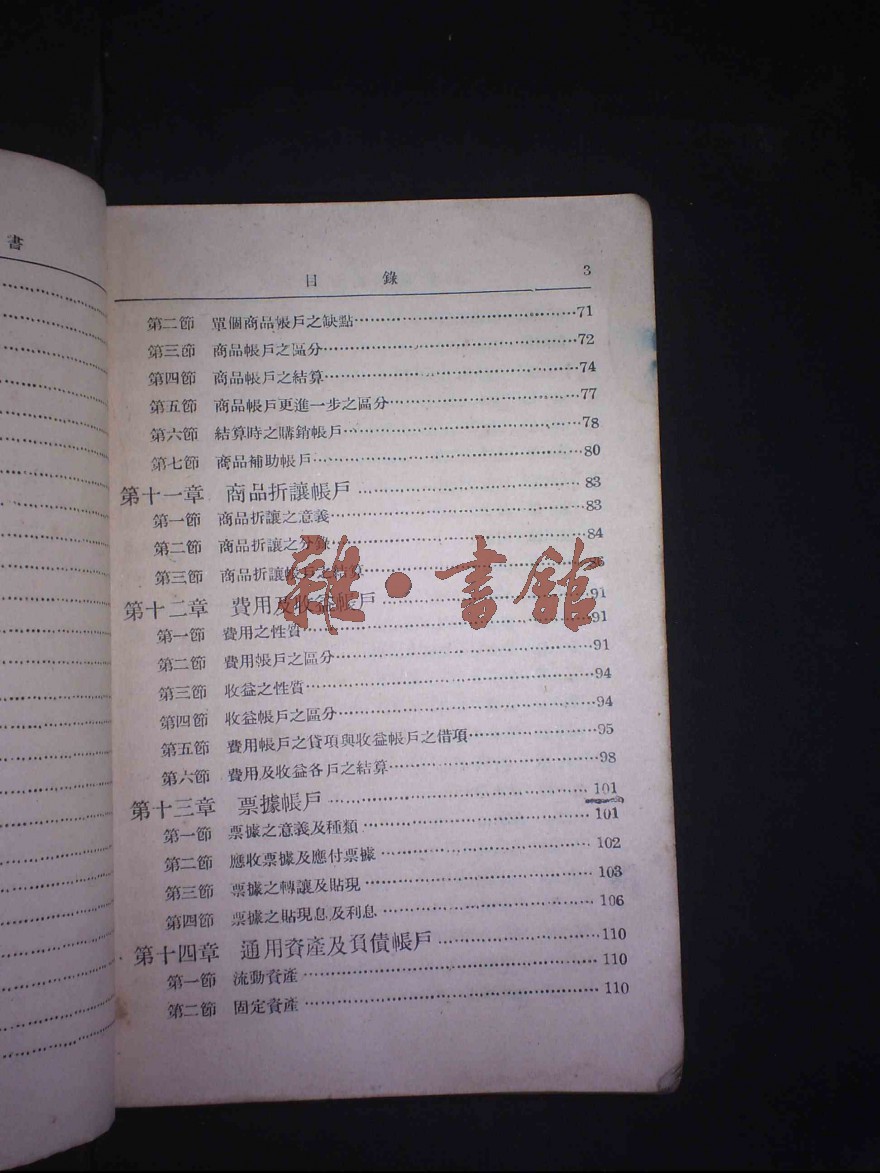 書
目 錄 3
第二節 單個商品帳戶之缺點 71
第三節 商品帳戶之區分 72
第四節 商品帳戶之結算 74
第五節 商品帳戶更進一步之區分 77
第六節 結算時之購銷帳戶 78
第七節 商品補助帳戶 80
第十一章 商品折讓帳戶 83
第一節 商品折讓之意義 83
第二節 商品折讓之分錄 84
第三節 商品折讓帳戶之結算
第十二章 費用及收益帳戶 91
第一節 費用之性質 91
第二節 費用帳戶之區分 91
第三節 收益之性質 94
第四節 收益帳戶之區分 94
第五節 費用帳戶之貸項與收益帳戶之借項 95
第六節 費用及收益各戶之結算 98
第十三章 票據帳戶 101
第一節 票據之意義及種類 101
第二節 應收票據及應付票據 102
第三節 票據之轉讓及貼現 103
第四節 票據之貼現息及利息 106
第十四章 通用資產及負債帳戶 110
第一節 流動資產 110
第二節 固定資產 110
雜·書館